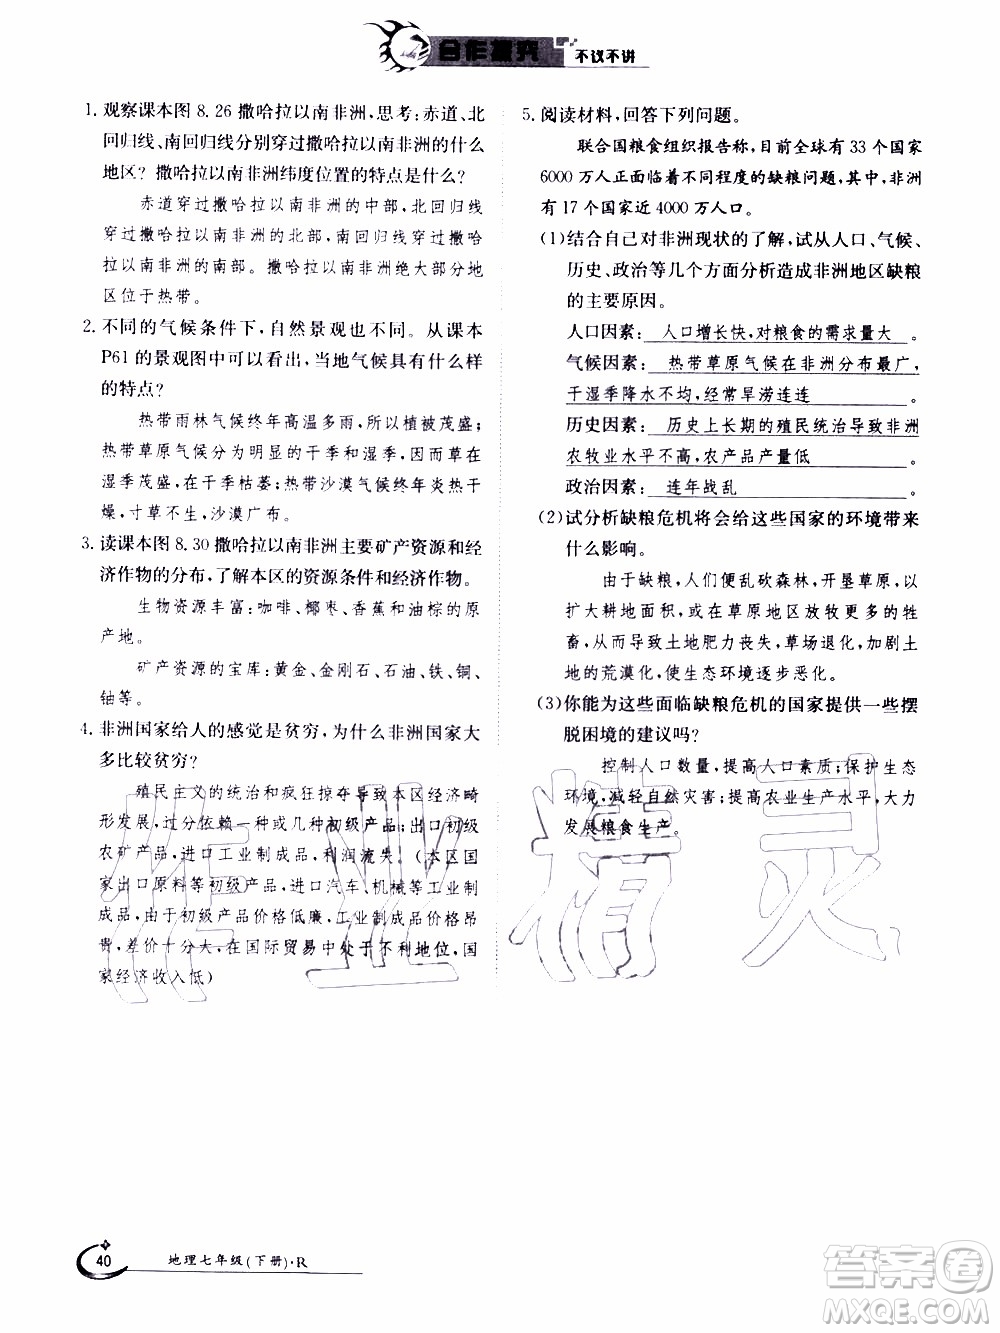 合作探究 不议不讲
1. 观察课本图 8.26 撒哈拉以南非洲,思考:赤道、北
回归线、南回归线分别穿过撒哈拉以南非洲的什么
地区? 撒哈拉以南非洲纬度位置的特点是什么?
赤道穿过撒哈拉以南非洲的中部,北回归线
穿过撒哈拉以南非洲的北部,南回归线穿过撒哈
拉以南非洲的南部。撒哈拉以南非洲绝大部分地
区位于热带。
2. 不同的气候条件下,自然景观也不同。从课本
P61 的景观图中可以看出,当地气候具有什么样
的特点?
热带雨林气候终年高温多雨,植被茂盛;
热带草原气候分为明显的干季和湿季,草木在
湿季茂盛,干季枯萎;热带沙漠气候终年炎热干
燥,寸草不生,沙漠广布。
3. 读课本图 8.30 撒哈拉以南非洲主要矿产资源和经
济作物的分布,了解本区的资源条件和经济作物。
生物资源丰富:咖啡、椰枣、香蕉和油棕的原
产地。
矿产资源的宝库:黄金、金刚石、石油、铁、铜、
铀等。
4. 非洲国家给人的感觉是贫穷,为什么非洲国家大
多比较贫穷?
殖民主义的统治和疯狂掠夺导致本区经济畸
形发展,过分依赖一种或几种初级产品;出口初级
农矿产品,进口工业制成品,利润流失。(本区国
家出口原料等初级产品,进口汽车、机械等工业制
成品,由于初级产品价格低廉,工业制成品价格昂
贵,差价十分大,在国际贸易中处于不利地位,国
家经济收入低)
5. 阅读材料,回答下列问题。
联合国粮食组织报告称,目前全球有 33 个国家
6000 万人正面临着不同程度的缺粮问题,其中,非洲
有 17 个国家近 4000 万人口。
(1)结合自己对非洲现状的了解,试从人口、气候、
历史、政治等几个方面分析造成非洲地区缺粮
的主要原因。
人口因素: 人口增长快,对粮食的需求量大
气候因素: 热带草原气候在非洲分布最广,
干湿季降水不均,经常旱涝连连 。
历史因素: 历史上长期的殖民统治导致非洲
农牧业水平不高,农产品产量低 。
政治因素: 连年战乱 。
(2)试分析缺粮危机将会给这些国家的环境带来
什么影响。
由于缺粮,人们便乱砍森林,开垦草原,以
扩大耕地面积,或在草原地区放牧更多的牲
畜,从而导致土地肥力丧失,草场退化,加剧土
地的荒漠化,使生态环境逐步恶化。
(3)你能为这些面临缺粮危机的国家提供一些摆
脱困境的建议吗?
控制人口数量,提高人口素质;保护生态
环境,减轻自然灾害;提高农业生产水平,大力
发展粮食生产。
作业精灵
40 地理七年级(下册)·R
答案圈
MXQE.COM